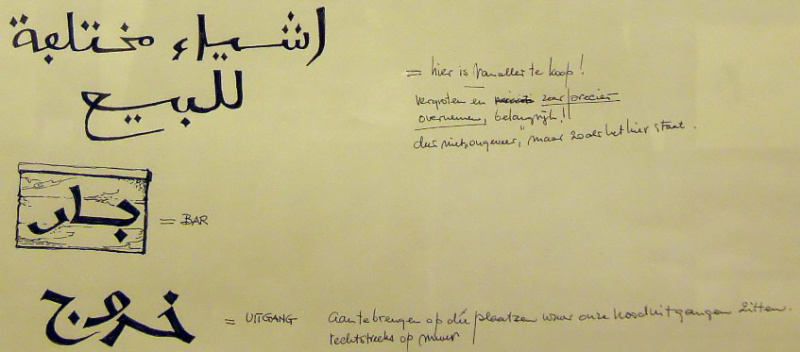 اشياء مختلفة
للبيع
= hier is van alles te koop!
vergroten en zeer precies
overnemen, belangrijk!!
dus niet "ongeveer", maar zoals het hier staat.
بار = BAR
خروج = UITGANG aan te brengen op die plaatsen waar onze nooduitgangen zitten.
rechtstreeks op muur